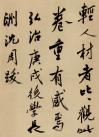 輕人材者比觀此
卷重有感焉
弘治庚戌後學長
洲沈周跋